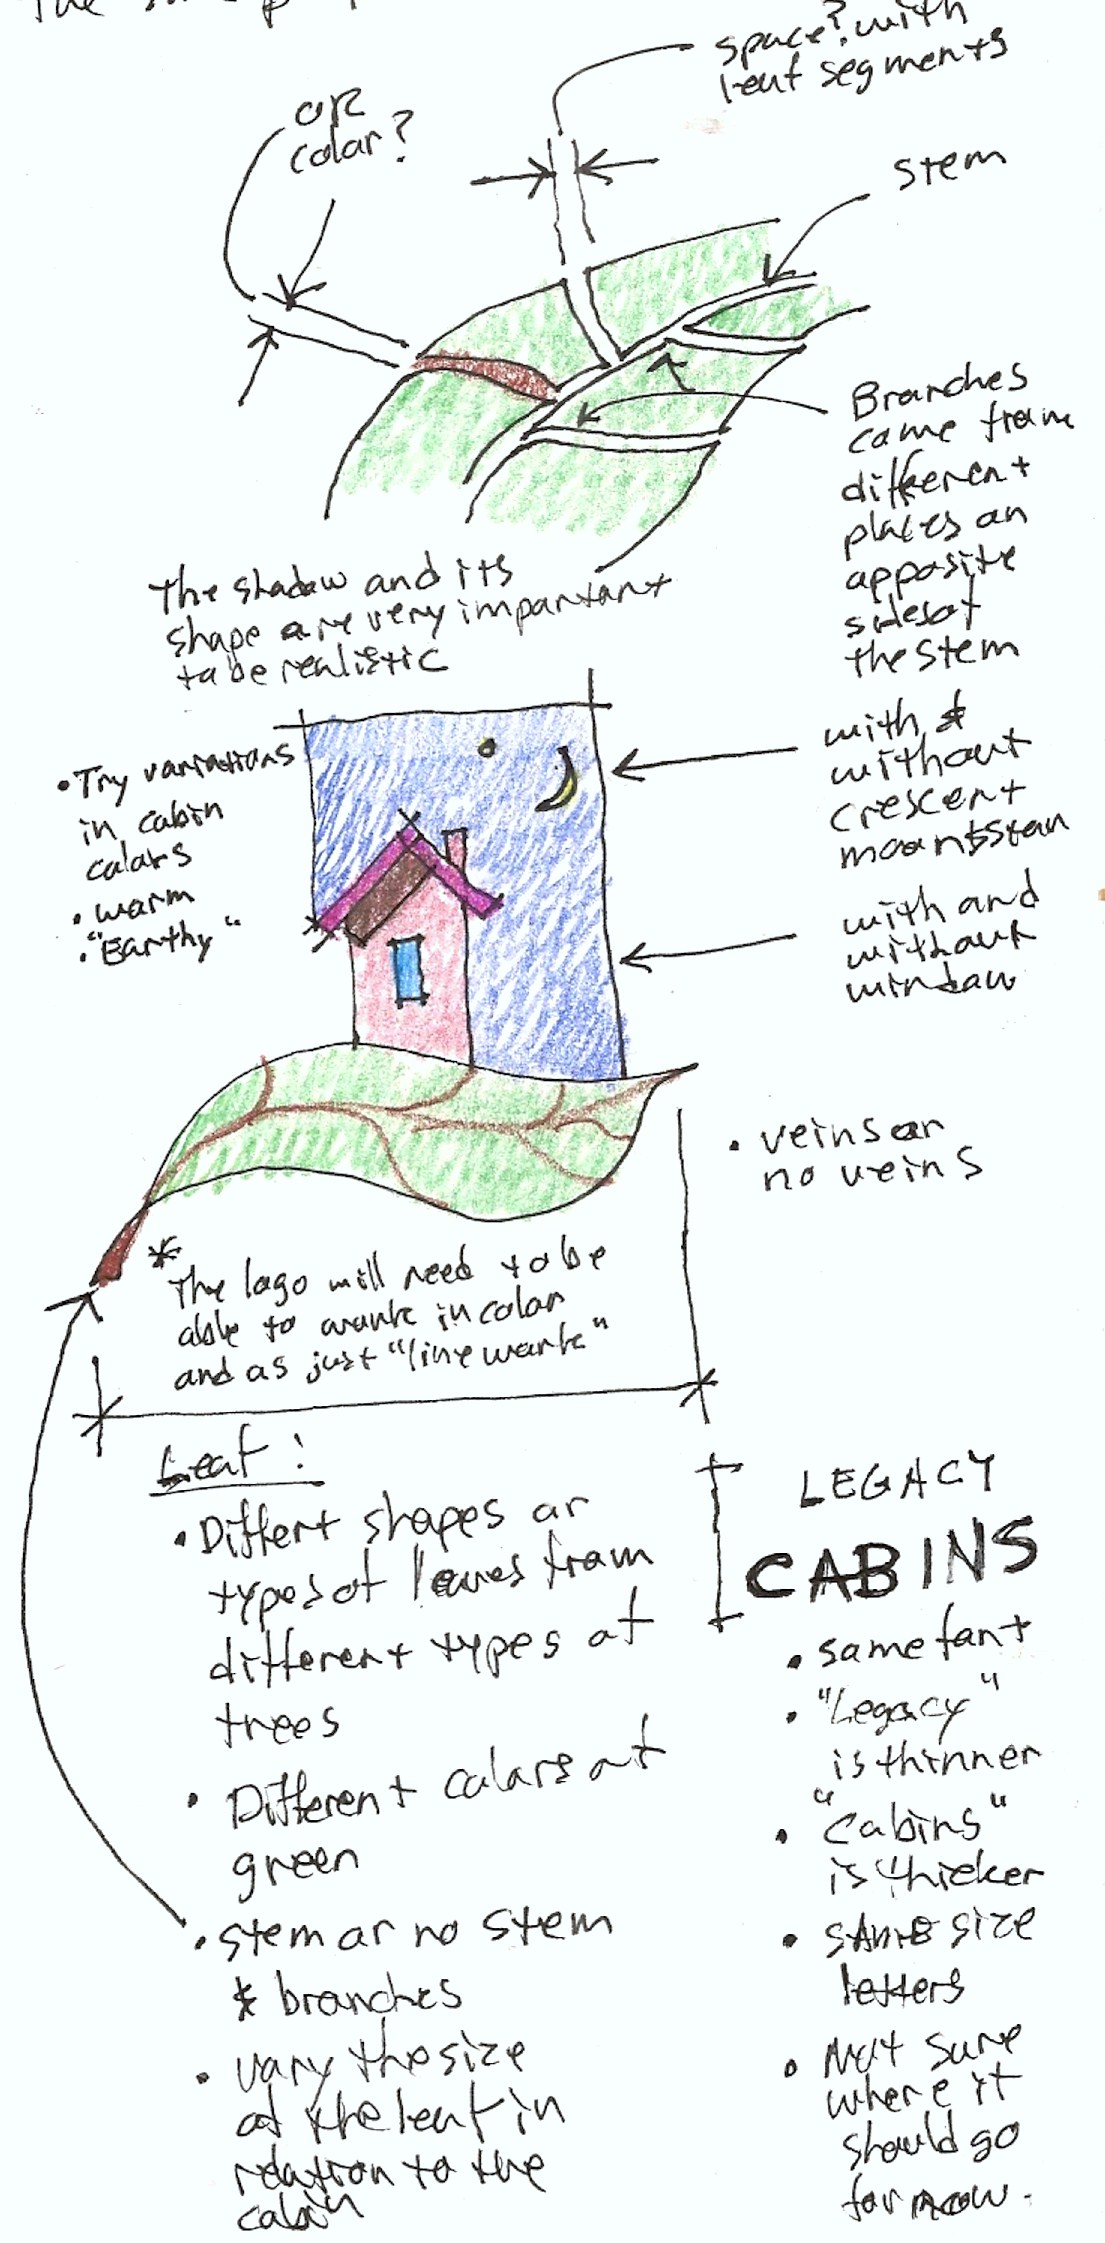 The
space? with
leaf segments
OR
color?
stem
Branches
come from
different
places on
opposite
sides of
the stem
The shadow and its
shape are very important
to be realistic
• Try variations
in cabin
colors
• warm
• "Earthy"
with &
without
crescent
moon & star
with and
without
window
• veins or
no veins
* The logo will need to be
able to work in color
and as just "line work"
Leaf:
• Differt shapes or
types of leaves from
different types of
trees
• Different colors of
green
• stem or no stem
& branches
• vary the size
of the leaf in
relation to the
cabin
LEGACY
CABINS
• same font
• "Legacy"
is thinner
• "Cabins"
is thicker
• SAME size
letters
• Not sure
where it
should go
for now.